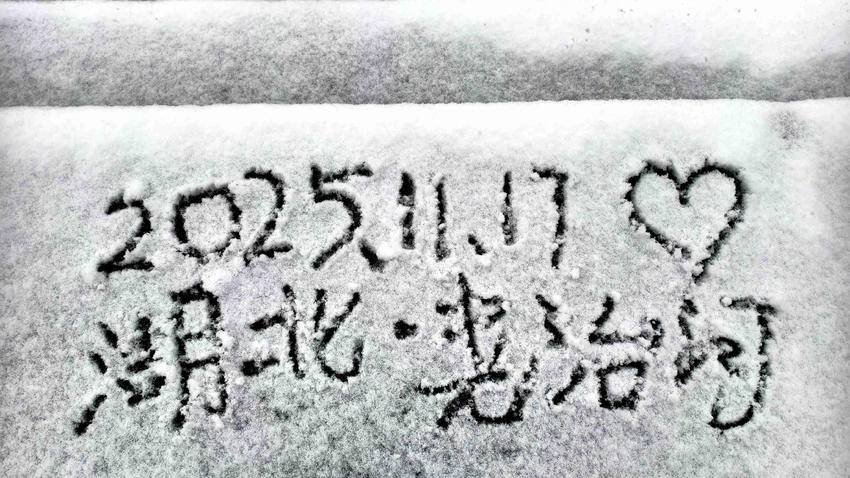 2025.11.17 ♡
湖北·老治河